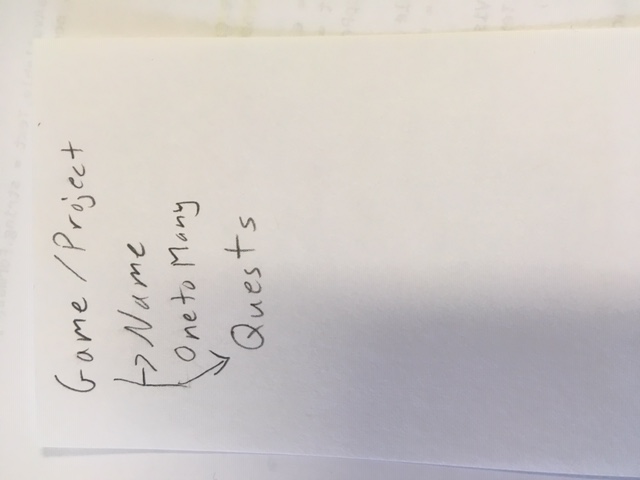 Game / Project
Name
One to Many
Quests